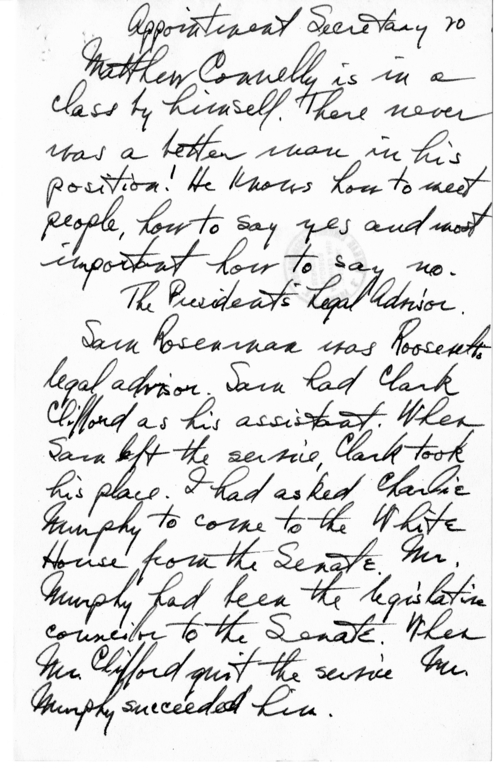 Appointment Secretary 20
Matthew Connelly is in a
class by himself. There never
was a better man in his
position! He knows how to meet
people, how to say yes and most
important how to say no.
The President's Legal Advisor.
Sam Rosenman was Roosevelts
legal advisor. Sam had Clark
Clifford as his assistant. When
Sam left the service, Clark took
his place. I had asked Charlie
Murphy to come to the White
House from the Senate. Mr.
Murphy had been the legislative
councilor to the Senate. When
Mr. Clifford quit the service Mr.
Murphy succeeded him.